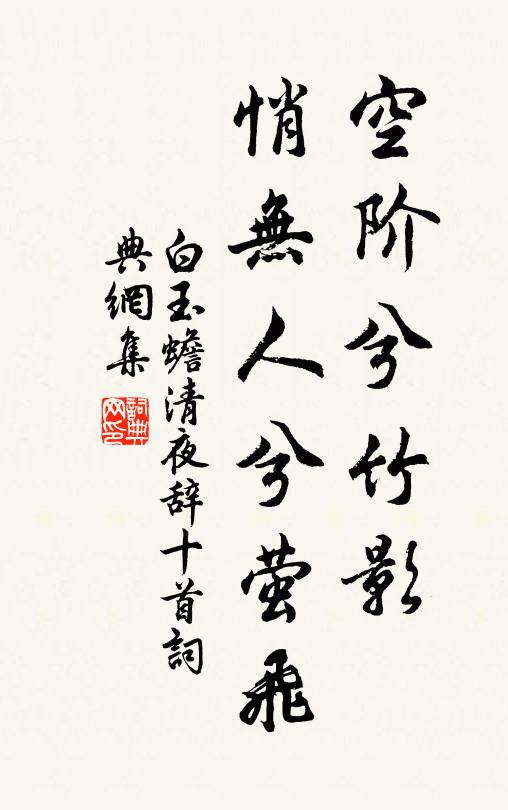 空阶兮竹影
悄無人兮萤飛
白玉蟾清夜辞十首詞
典網集
詞典
网印